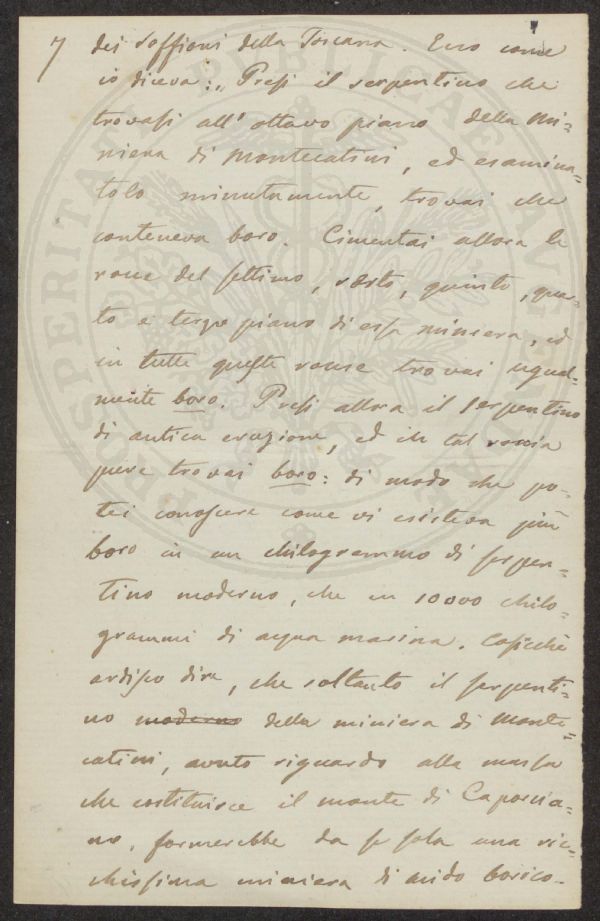 7 dei soffioni della Toscana. Ecco come
io diceva: „ Presi il serpentino che
trovasi all' ottavo piano della Mi=
niera di Montecatini, ed esamina=
tolo minutamente, trovai che
conteneva boro. Cimentai allora le
rocce del settimo, sesto, quinto, quar=
to e terzo piano di essa miniera, ed
in tutte queste rocce trovai ugual=
mente boro. Presi allora il serpentino
di antica eruzione, ed in tal roccia
pure trovai boro: di modo che po=
tei conoscere come vi esisteva più
boro in un chilogrammo di serpen=
tino moderno, che in 10000 chilo=
grammi di acqua marina. Cosicchè
ardisco dire, che soltanto il serpenti=
no moderno della miniera di Monte=
catini, avuto riguardo alla massa
che costituisce il monte di Caporcia=
no, formerebbe da se sola una ric=
chissima miniera di acido borico.
PROSPERITATI PUBLICAE AUGENDAE